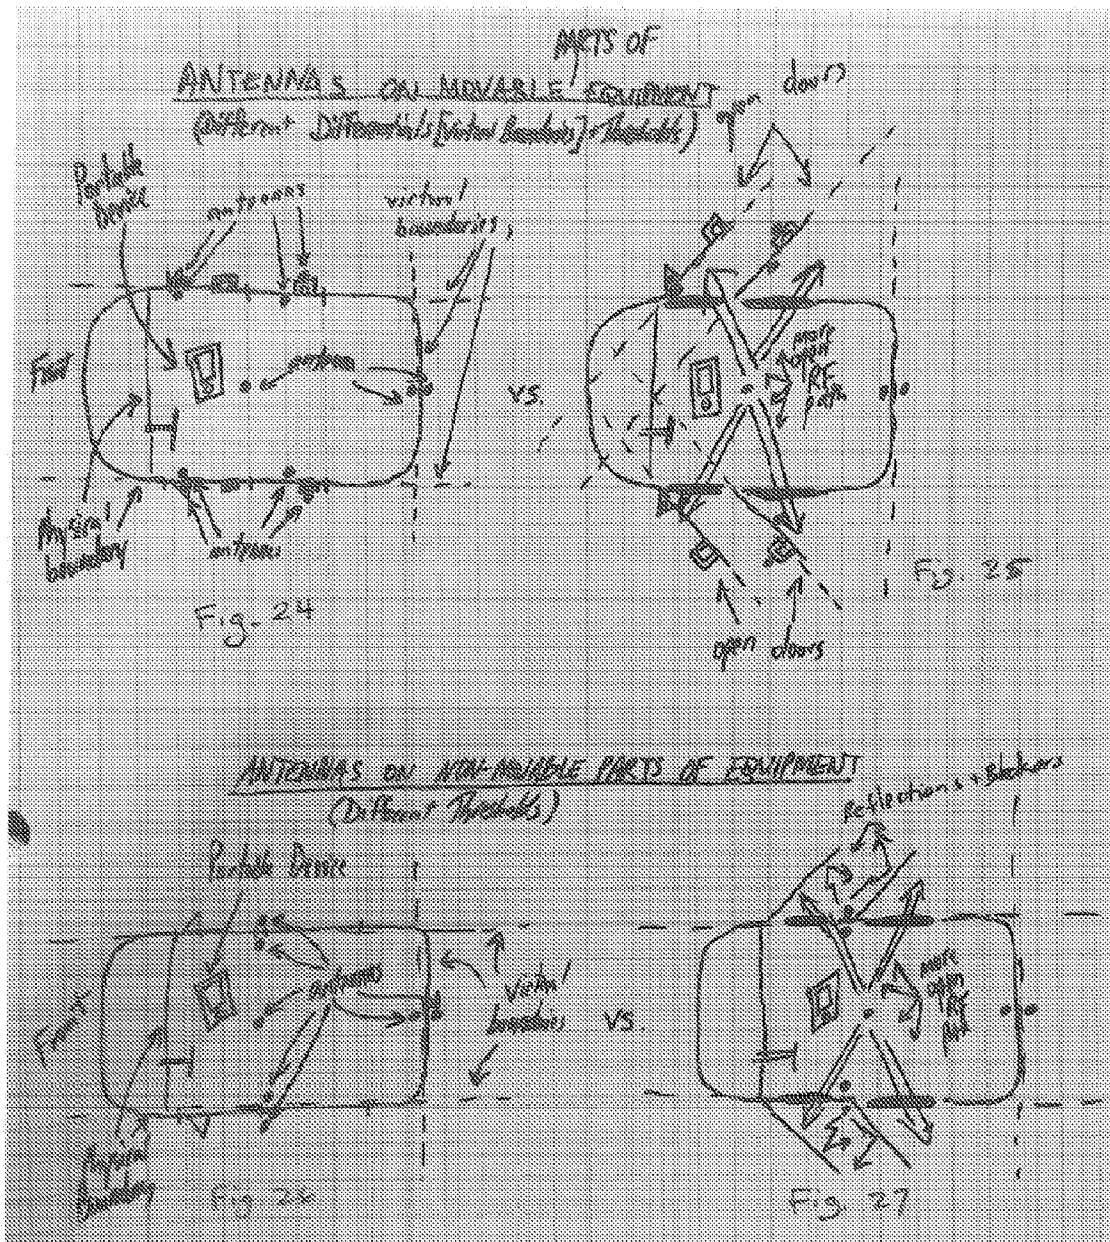 PARTS OF
ANTENNAS ON MOVABLE EQUIPMENT
(Different Differentials [Virtual Boundaries] + Thresholds)
open doors
Portable Device
antennas
virtual boundaries
Front
antennas
vs.
more open RF path
Physical boundary
antennas
Fig. 24
Fig. 25
open doors
ANTENNAS ON NON-MOVABLE PARTS OF EQUIPMENT
(Different Thresholds)
Reflections + Blockers
Portable Device
antennas
Front
Virtual boundaries
vs.
more open RF
Physical boundary
Fig.
Fig. 27